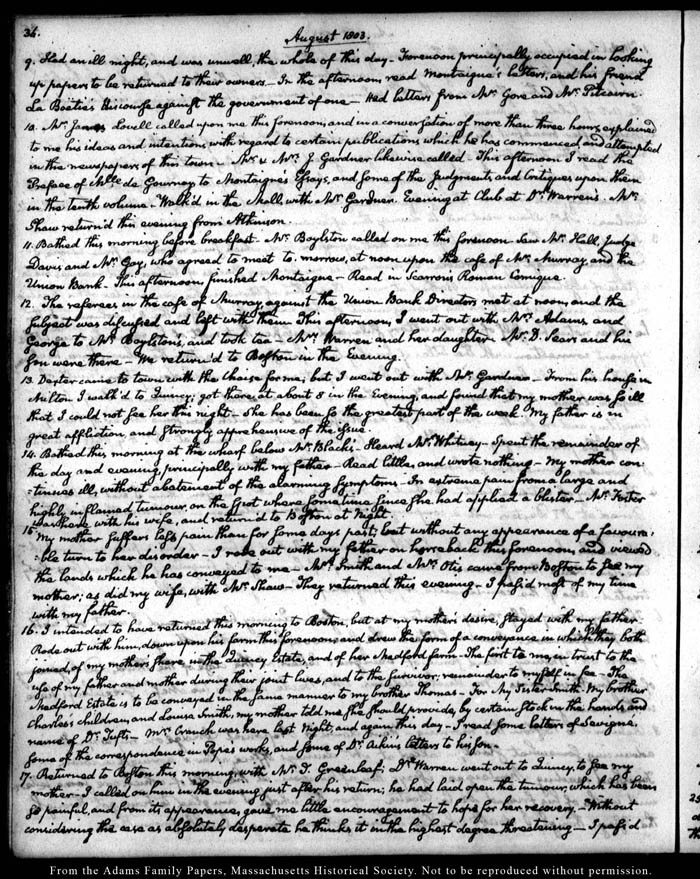 34.
August 1803.
9. Had an ill night, and was unwell, the whole of this day. Forenoon principally occupied in looking
up papers to be returned to their owners — In the afternoon, read Montaigne's letters, and his friend
La Boëtie's Discourse against the government of one — Had letters from Mr. Gore and Mr. Pitcairn.
10. Mr. James Lovell called upon me this forenoon, and in a conversation of more than three hours, explained
to me his ideas and intentions with regard to certain publications which he has commenced and attempted
in the newspapers of this town — Mr. & Mrs. J. Gardner likewise called — This afternoon I read the
Preface of Mlle. de Gournay to Montaigne's Essays, and some of the Judgments, and Critiques upon them
in the tenth volume. Walk'd in the Mall, with Mr. Gardner. Evening at Club at Dr. Warren's. Mrs.
Shaw return'd this evening from Atkinson.
11. Bathed this morning before breakfast. Mr. Boylston called on me this forenoon. Saw Mr. Hall, Judge
Davis, and Mr. Gay, who agreed to meet to-morrow, at noon upon the case of Mr. Murray, and the
Union Bank. This afternoon finished Montaigne — Read in Scarron's Roman Comique.
12. The referees, in the case of Murray, against the Union Bank Directors met at noon, and the
subject was discussed and left with them. This afternoon, I went out with Mrs. Adams, and
George to Mr. Boylston's, and took tea — Mrs. Warren and her daughter — Mr. D. Sears and his
Son were there — We return'd to Boston in the Evening.
13. Dexter came to town with the Chaise for me; but I went out with Mr. Gardner — From his house in
Milton I walk'd to Quincy; got there at about 8 in the Evening, and found that my mother was so ill
that I could not see her this night — She has been so the greatest part of the week. My father is in
great affliction, and strongly apprehensive of the issue.
14. Bathed this morning at the wharf below Mr. Black's — Heard Mr. Whitney — Spent the remainder of
the day and evening, principally with my father — Read little, and wrote nothing — My mother con-
:tinues ill, without abatement of the alarming symptoms — In extreme pain from a large and
highly inflamed tumour, on the spot where some time since she had applied a blister — Mr. Foster
was here with his wife, and return'd to Boston at Night
15. My mother suffers less pain than for some days past; but without any appearance of a favoura:
:ble turn to her disorder — I rode out with my father on horseback this forenoon, and viewed
the lands which he has conveyed to me — Mrs. Smith and Mrs. Otis came from Boston to see my
mother; as did my wife, with Mrs. Shaw — They returned this evening. I pass'd most of my time
with my father.
16. I intended to have returned this morning to Boston, but at my mother's desire, stayed with my father.
Rode out with him, down upon his farm this forenoon; and drew the form of a conveyance, in which they both
joined, of my mother's share in the Quincy Estate, and of her Medford farm. The first to me, in trust to the
use of my father and mother during their joint lives, and to the survivor; remainder to myself in fee. The
Medford Estate is to be conveyed in the same manner to my brother Thomas — For My Sister Smith, My brother
Charles's children, and Louisa Smith, my mother told me she should provide, by certain stock in the hands and
name of Dr. Tufts — Mrs. Cranch was here last Night, and again this day — I read some letters of Sevigné,
some of the correspondence in Pope's works, and some of Dr. Aikin's letters to his Son.
17. Returned to Boston this morning, with Mr. T. Greenleaf; Dr. Warren went out to Quincy, to see my
mother — I called on him in the evening just after his return; he had laid open the tumour, which has been
so painful, and from its appearance, gave me little encouragement to hope for her recovery — Without
considering the case as absolutely desperate he thinks it in the highest degree threatening — I pass'd
From the Adams Family Papers, Massachusetts Historical Society. Not to be reproduced without permission.